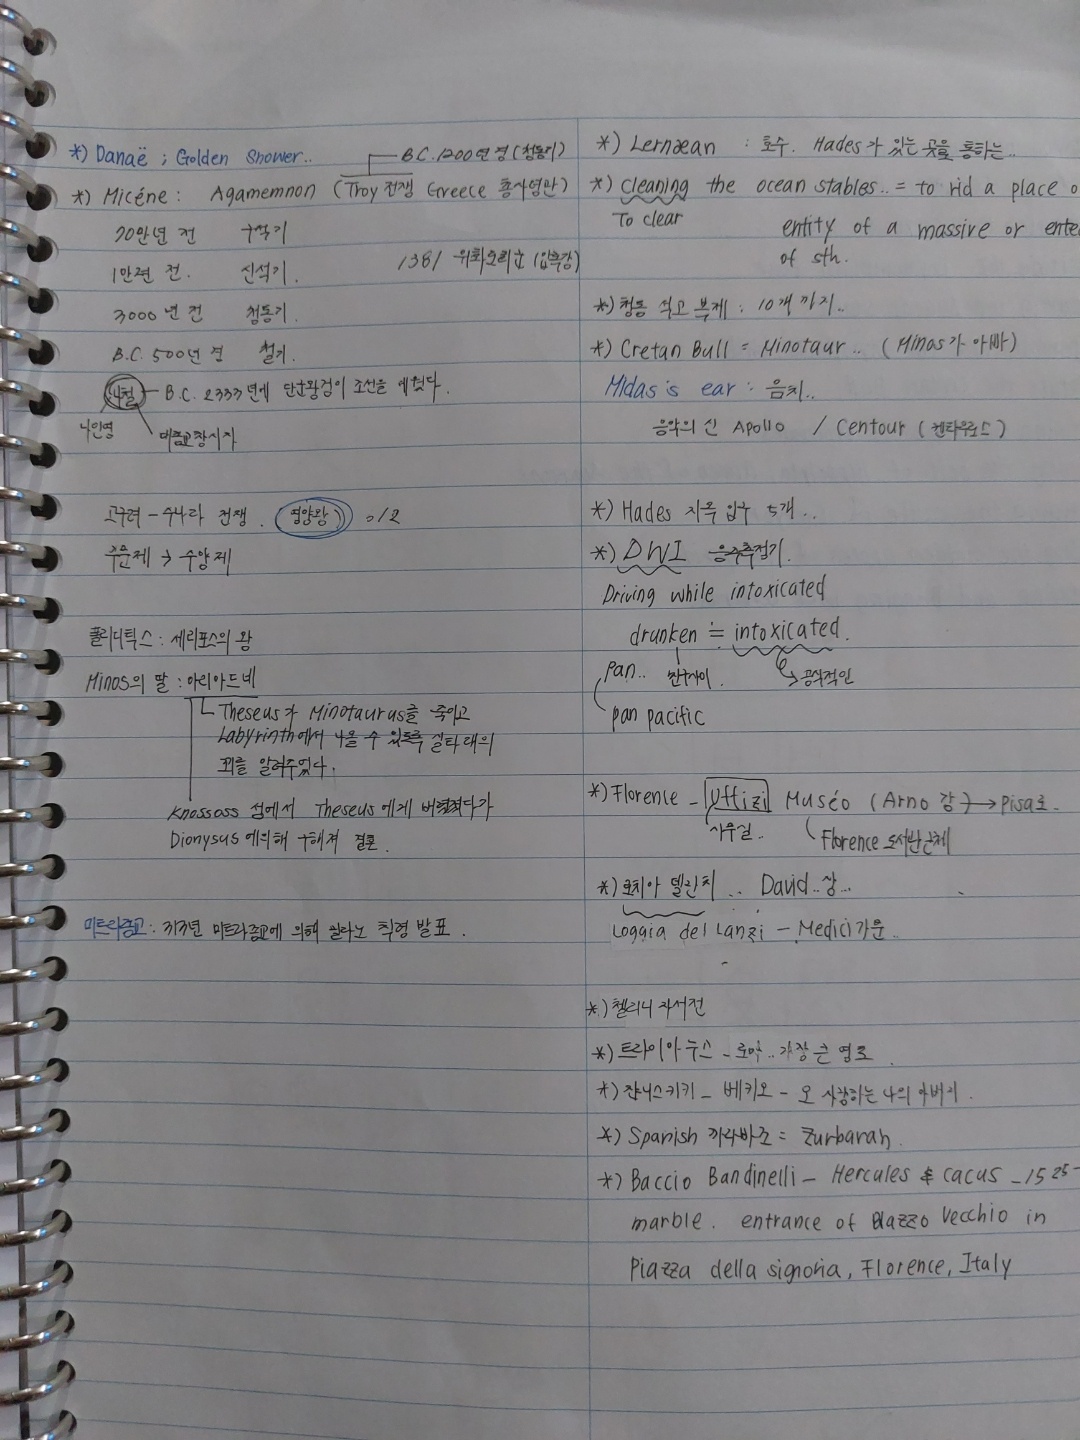 *) Danaë ; Golden Shower..
B.C. 1200년경 (청동기)
*) Micéne : Agamemnon (Troy 전쟁 Greece 총사령관)
70만년 전 구석기
1만년 전. 신석기.
1381 위화도회군 (압록강)
3000년 전 청동기.
B.C. 500년 경 철기.
나철 - B.C. 2333년에 단군왕검이 조선을 세웠다.
나인영 대종교창시자
고구려 - 수나라 전쟁. (영양왕) 612
수문제 → 수양제
폴리덱틱스 : 세리포스의 왕
Minos의 딸 : 아리아드네
Theseus가 Minotaurus를 죽이고
Labyrinth에서 나올 수 있도록 실타래의
꾀를 알려주었다.
Knossoss 섬에서 Theseus에게 버려졌다가
Dionysus에의해 구해져 결혼.
미트라종교 : 313년 미트라종교에 의해 밀라노 칙령 발표.
*) Lernæan : 호수. Hades가 있는 곳을 통하는..
*) cleaning the ocean stables.. = to rid a place o
To clear entity of a massive or
of sth.
*) 청동 부제 : 10개 까지..
*) Cretan Bull = Minotaur.. (Minos가 아빠)
Midas's ear : 음치..
음악의 신 Apollo / Centour (켄타우로스)
*) Hades 지옥 입구 5개..
*) DWI 음주측정기.
Driving while intoxicated
drunken ≒ intoxicated.
pan.. 공식적인
pan pacific
*) Florence - Uffizi Muséo (Arno 강) → pisa로.
사무실.. Florence 도서관근처
*) 로치아 델란치 .. David..상...
Loggia del Lanzi - Medici가문..
*) 첼리니 자서전
*) 트라이아누스 - 로마.. 가장 큰 영토.
*) 쟌니스키키 - 베키오 - 오 사랑하는 나의 아버지.
*) Spanish 까라바조 = Zurbaran.
*) Baccio Bandinelli - Hercules & cacus - 1525-
marble. entrance of Plazzo Vecchio in
Piazza della signoria, Florence, Italy